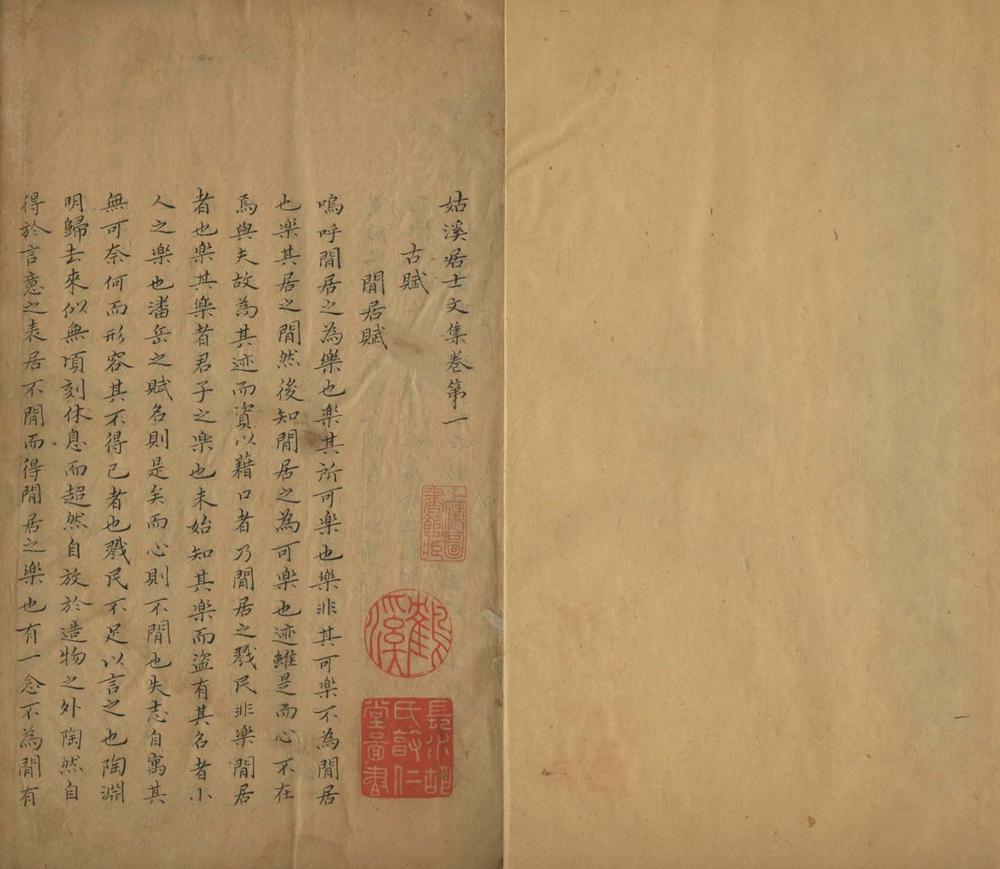 姑溪居士文集卷第一
古賦
閒居賦
嗚呼閒居之為樂也樂其所可樂也樂非其可樂不為閒居
也樂其居之閒然後知閒居之為可樂也迹雖是而心不在
焉與夫故為其迹而資以藉口者乃閒居之戮民非樂閒居
者也樂其樂者君子之樂也未始知其樂而盜有其名者小
人之樂也潘岳之賦名則是矣而心則不閒也失志自寓其
無可奈何而形容其不得已者也戮民不足以言之也陶淵
明歸去來似無頃刻休息而超然自放於造物之外陶然自
得於言意之表居不閒而得閒居之樂也有一念不為閒有
鶴溪
長水胡氏敦仁堂圖書